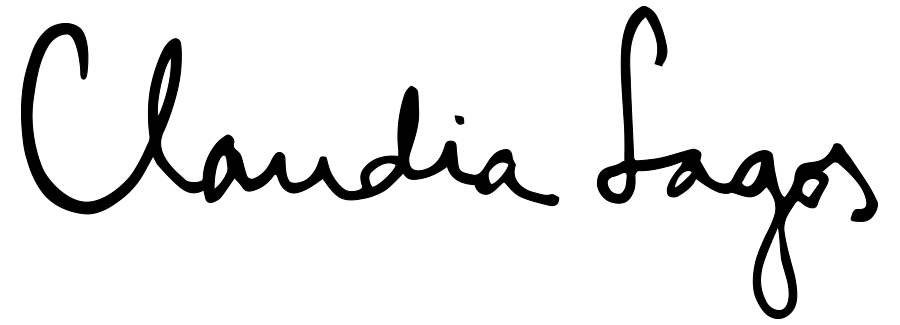 Claudia Lagos